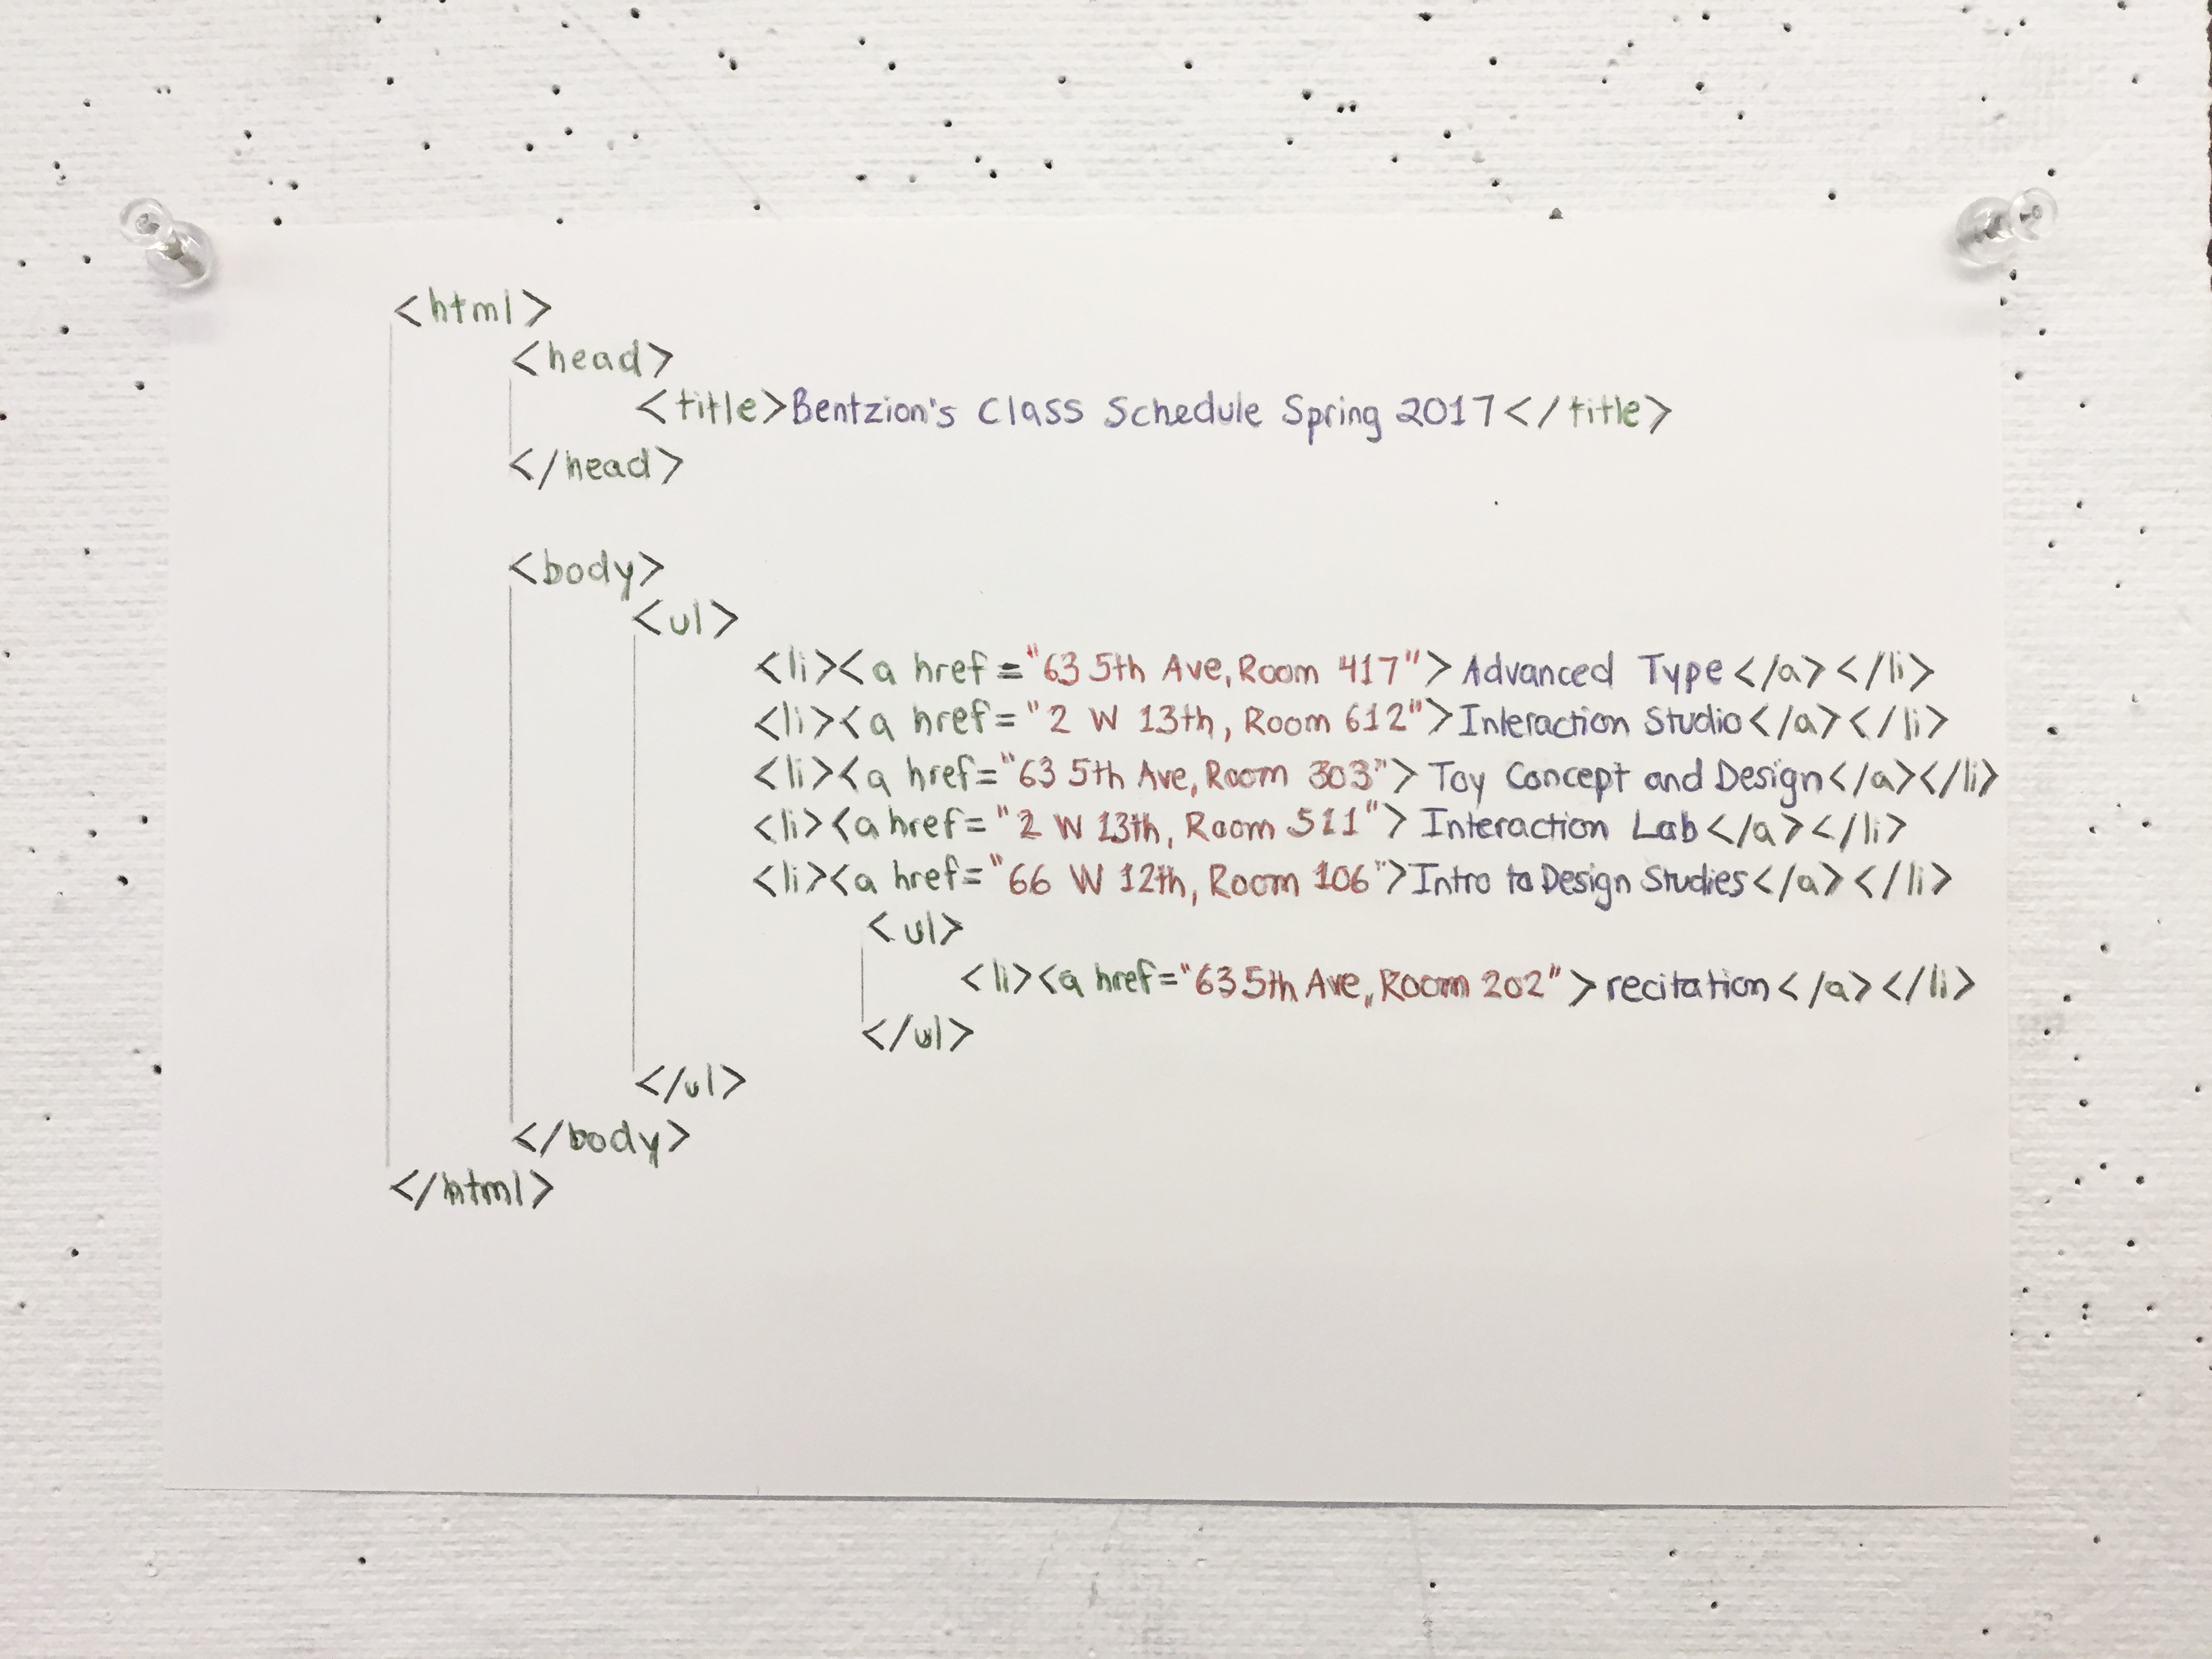 <html>
<head>
<title>Bentzion's Class Schedule Spring 2017</title>
</head>
<body>
<ul>
<li><a href="63 5th Ave, Room 417">Advanced Type</a></li>
<li><a href="2 W 13th, Room 612">Interaction Studio</a></li>
<li><a href="63 5th Ave, Room 303">Toy Concept and Design</a></li>
<li><a href="2 W 13th, Room 511">Interaction Lab</a></li>
<li><a href="66 W 12th, Room 106">Intro to Design Studies</a></li>
<ul>
<li><a href="63 5th Ave, Room 202">recitation</a></li>
</ul>
</ul>
</body>
</html>